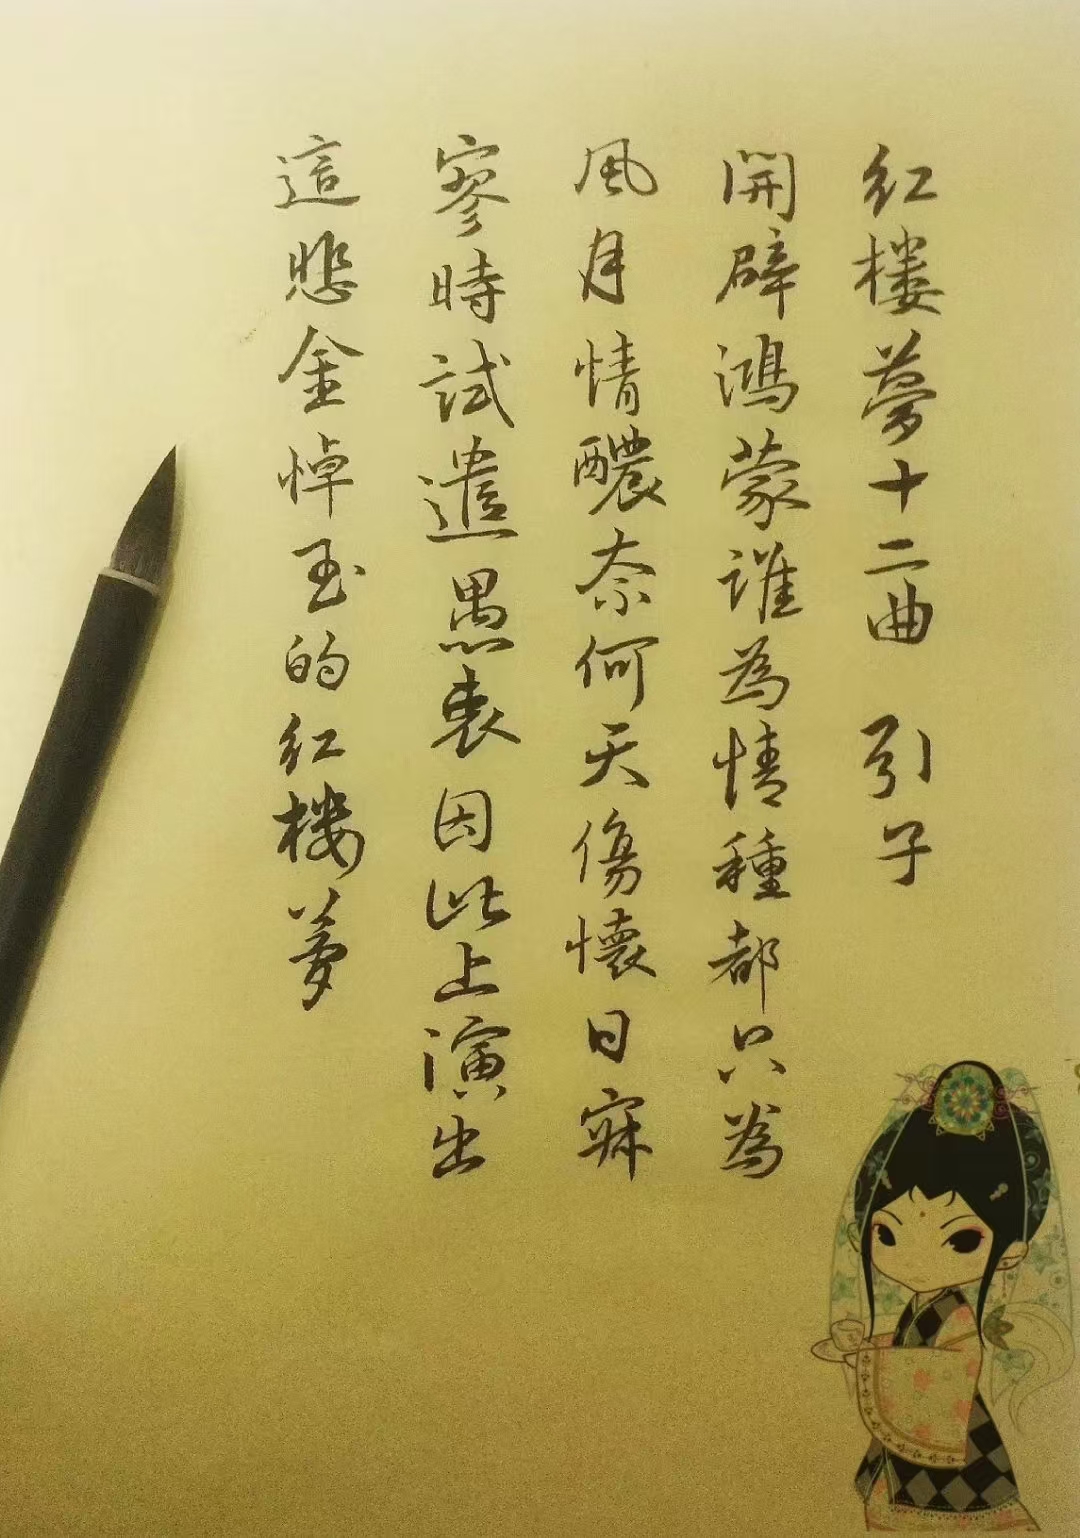 红楼夢十二曲 引子
開辟鴻蒙誰為情種都只為
風月情醲奈何天傷懷日寂
寥時試遣愚衷因此上演出
這悲金悼玉的红楼夢